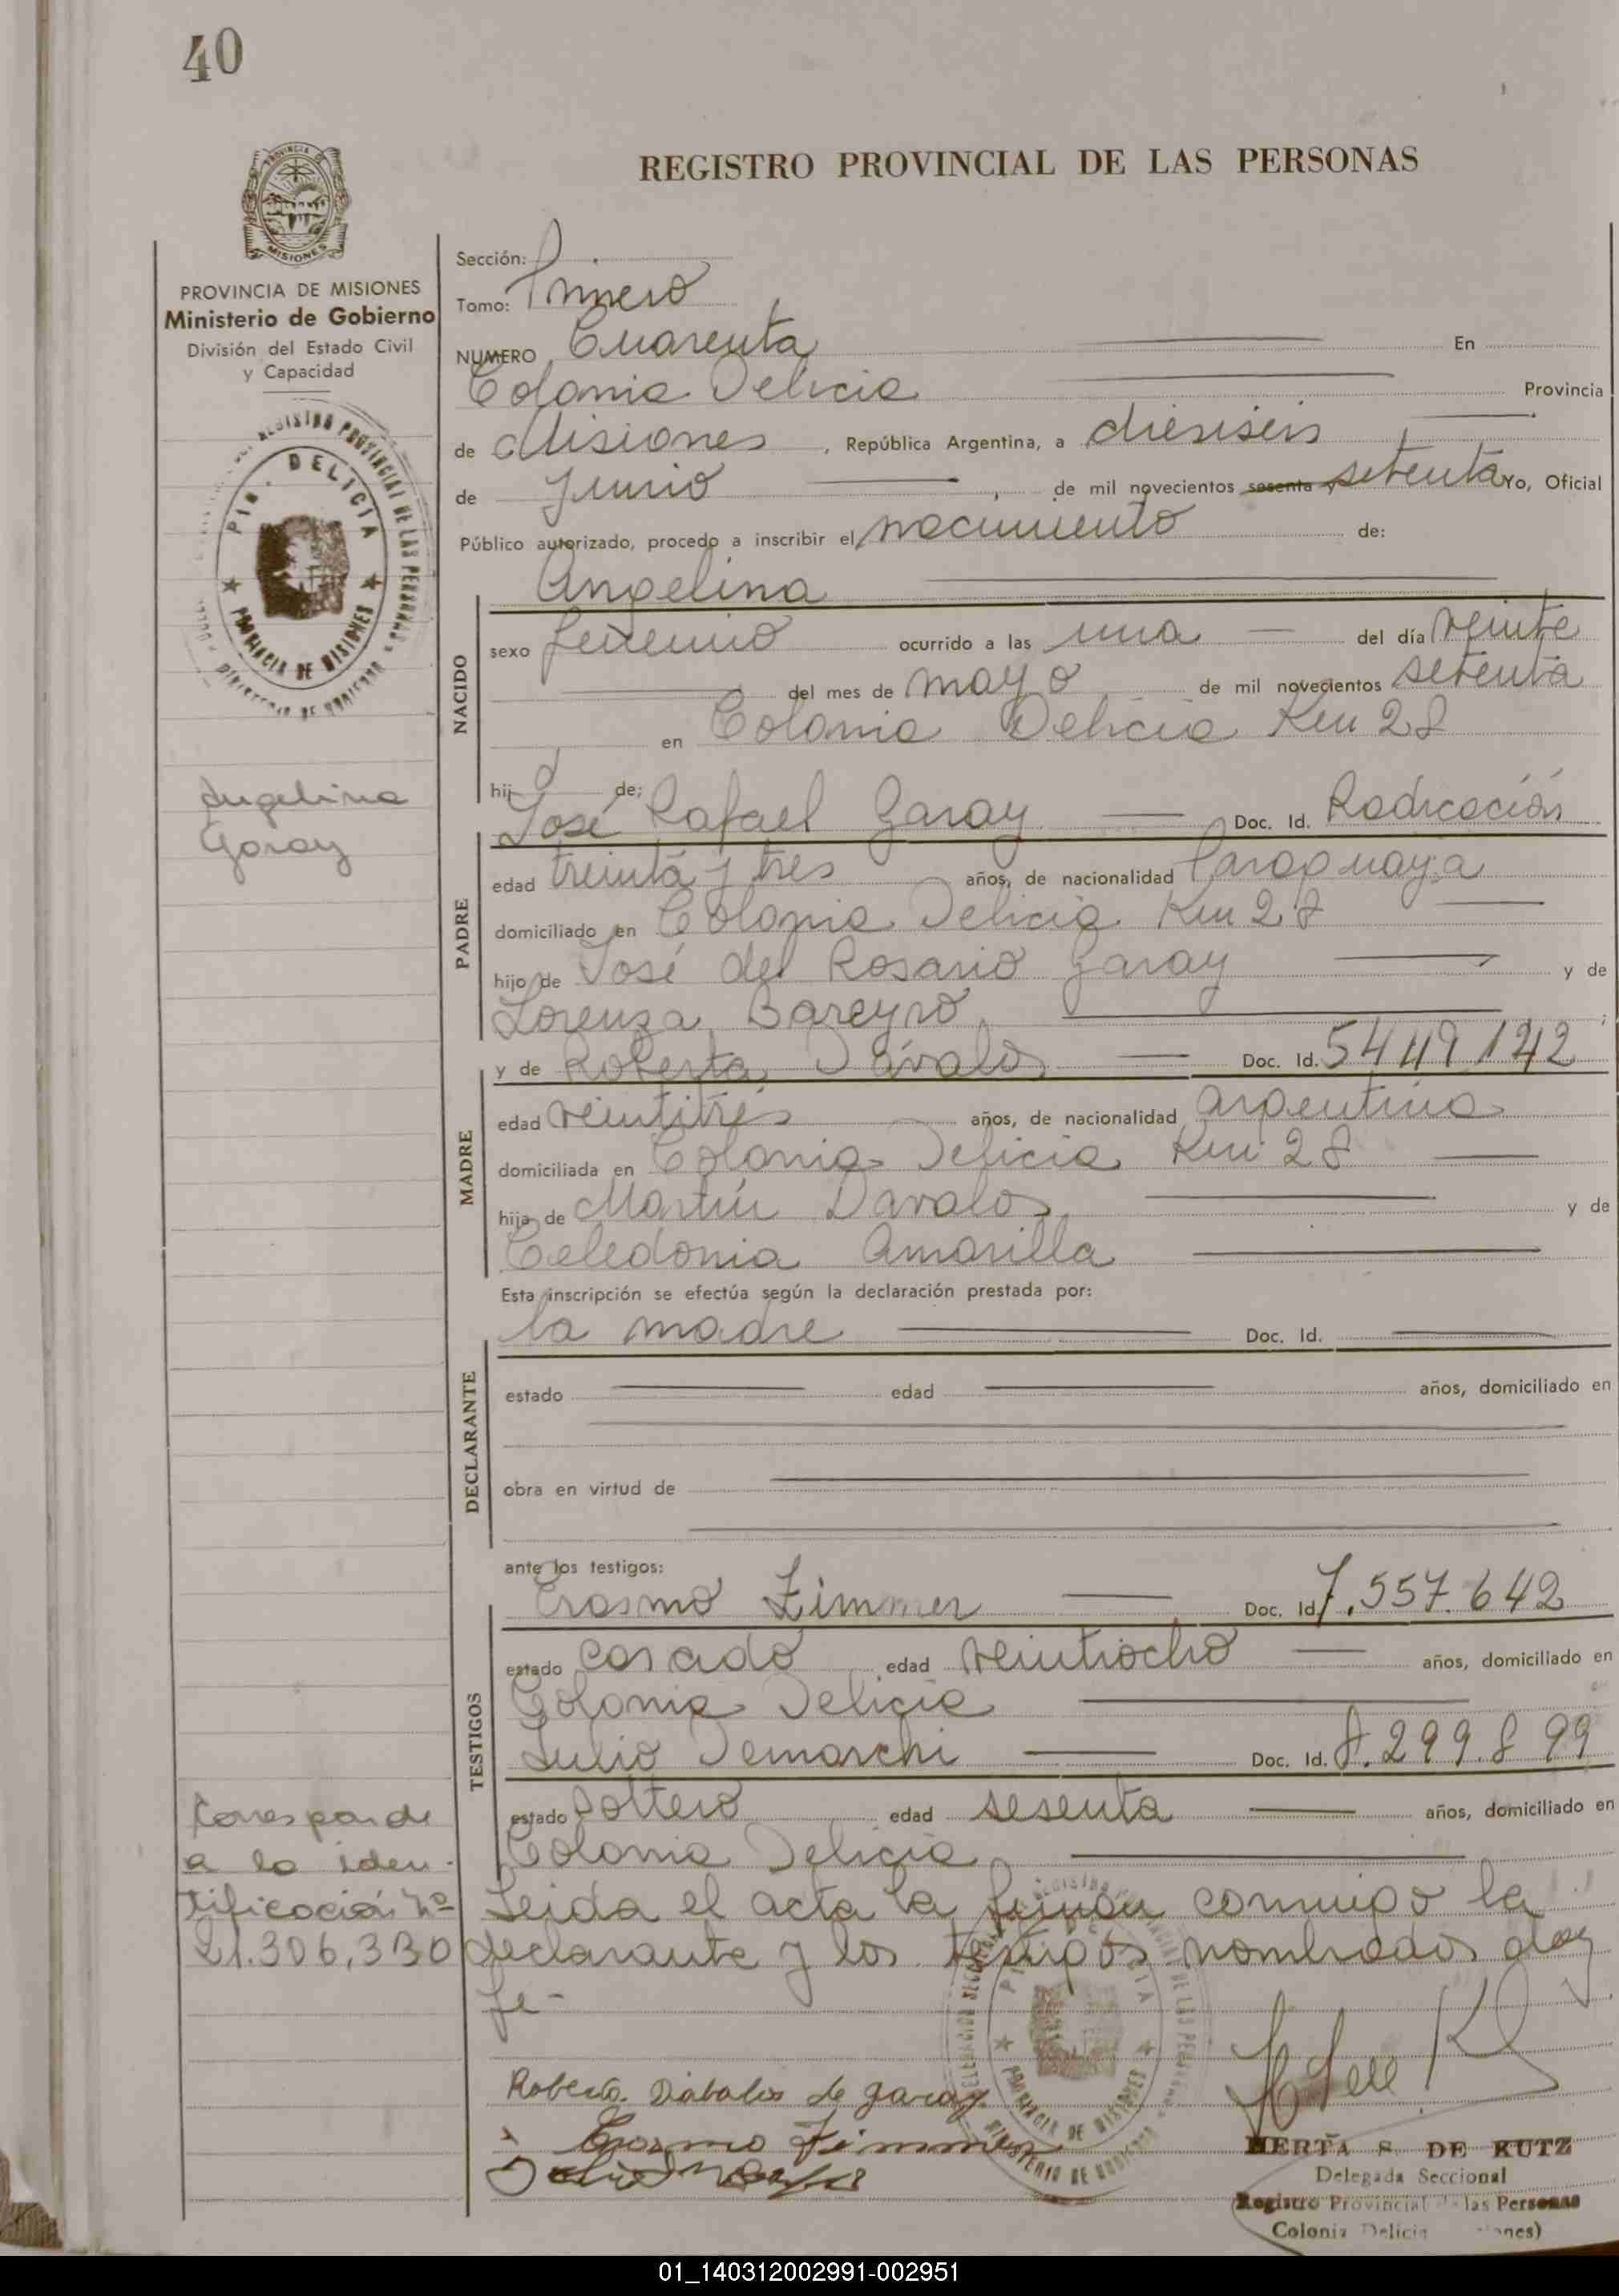 40
REGISTRO PROVINCIAL DE LAS PERSONAS
PROVINCIA DE MISIONES
Ministerio de Gobierno
División del Estado Civil
y Capacidad
PROVINCIA DE MISIONES
REGISTRO PROVINCIAL DE LAS PERSONAS
DELICIA
PROVINCIA DE MISIONES
Angelina
Garay
Corresponde
a la iden-
tificación Nº
21.306,330
Sección:
Tomo: Primero
NUMERO Cuarenta En
Colonia Delicia Provincia
de Misiones, República Argentina, a diesiseis
de Junio, de mil novecientos sesenta y setenta Yo, Oficial
Público autorizado, procedo a inscribir el nacimiento de:
Angelina
NACIDO
sexo femenino ocurrido a las una del día veinte
del mes de mayo de mil novecientos setenta
en Colonia Delicia Km 28
hija de:
José Rafael Garay Doc. Id. Radicación
PADRE
edad treinta y tres años, de nacionalidad Paraguaya
domiciliado en Colonia Delicia Km 28
hijo de José del Rosario Garay y de
Lorenza Bareyro ;
y de Roberta Dávalos Doc. Id. 5449142
MADRE
edad veintitrés años, de nacionalidad argentina
domiciliada en Colonia Delicia Km 28
hija de Martín Davalos y de
Celedonia Amarilla
Esta inscripción se efectúa según la declaración prestada por:
la madre Doc. Id.
DECLARANTE
estado edad años, domiciliado en
obra en virtud de
ante los testigos:
Erasmo Zimmer Doc. Id. 7.557.642
TESTIGOS
estado casado edad veintiocho años, domiciliado en
Colonia Delicia
Julio Demarchi Doc. Id. 8.299.899
estado soltero edad sesenta años, domiciliado en
Colonia Delicia
Leida el acta la firman conmigo la
declarante y los testigos nombrados doy
fe-
Roberta Diabalos de garay
Erasmo Zimmer
HERTA S. DE KUTZ
Delegada Seccional
Registro Provincial de las Personas
Colonia Delicia
01_140312002991-002951